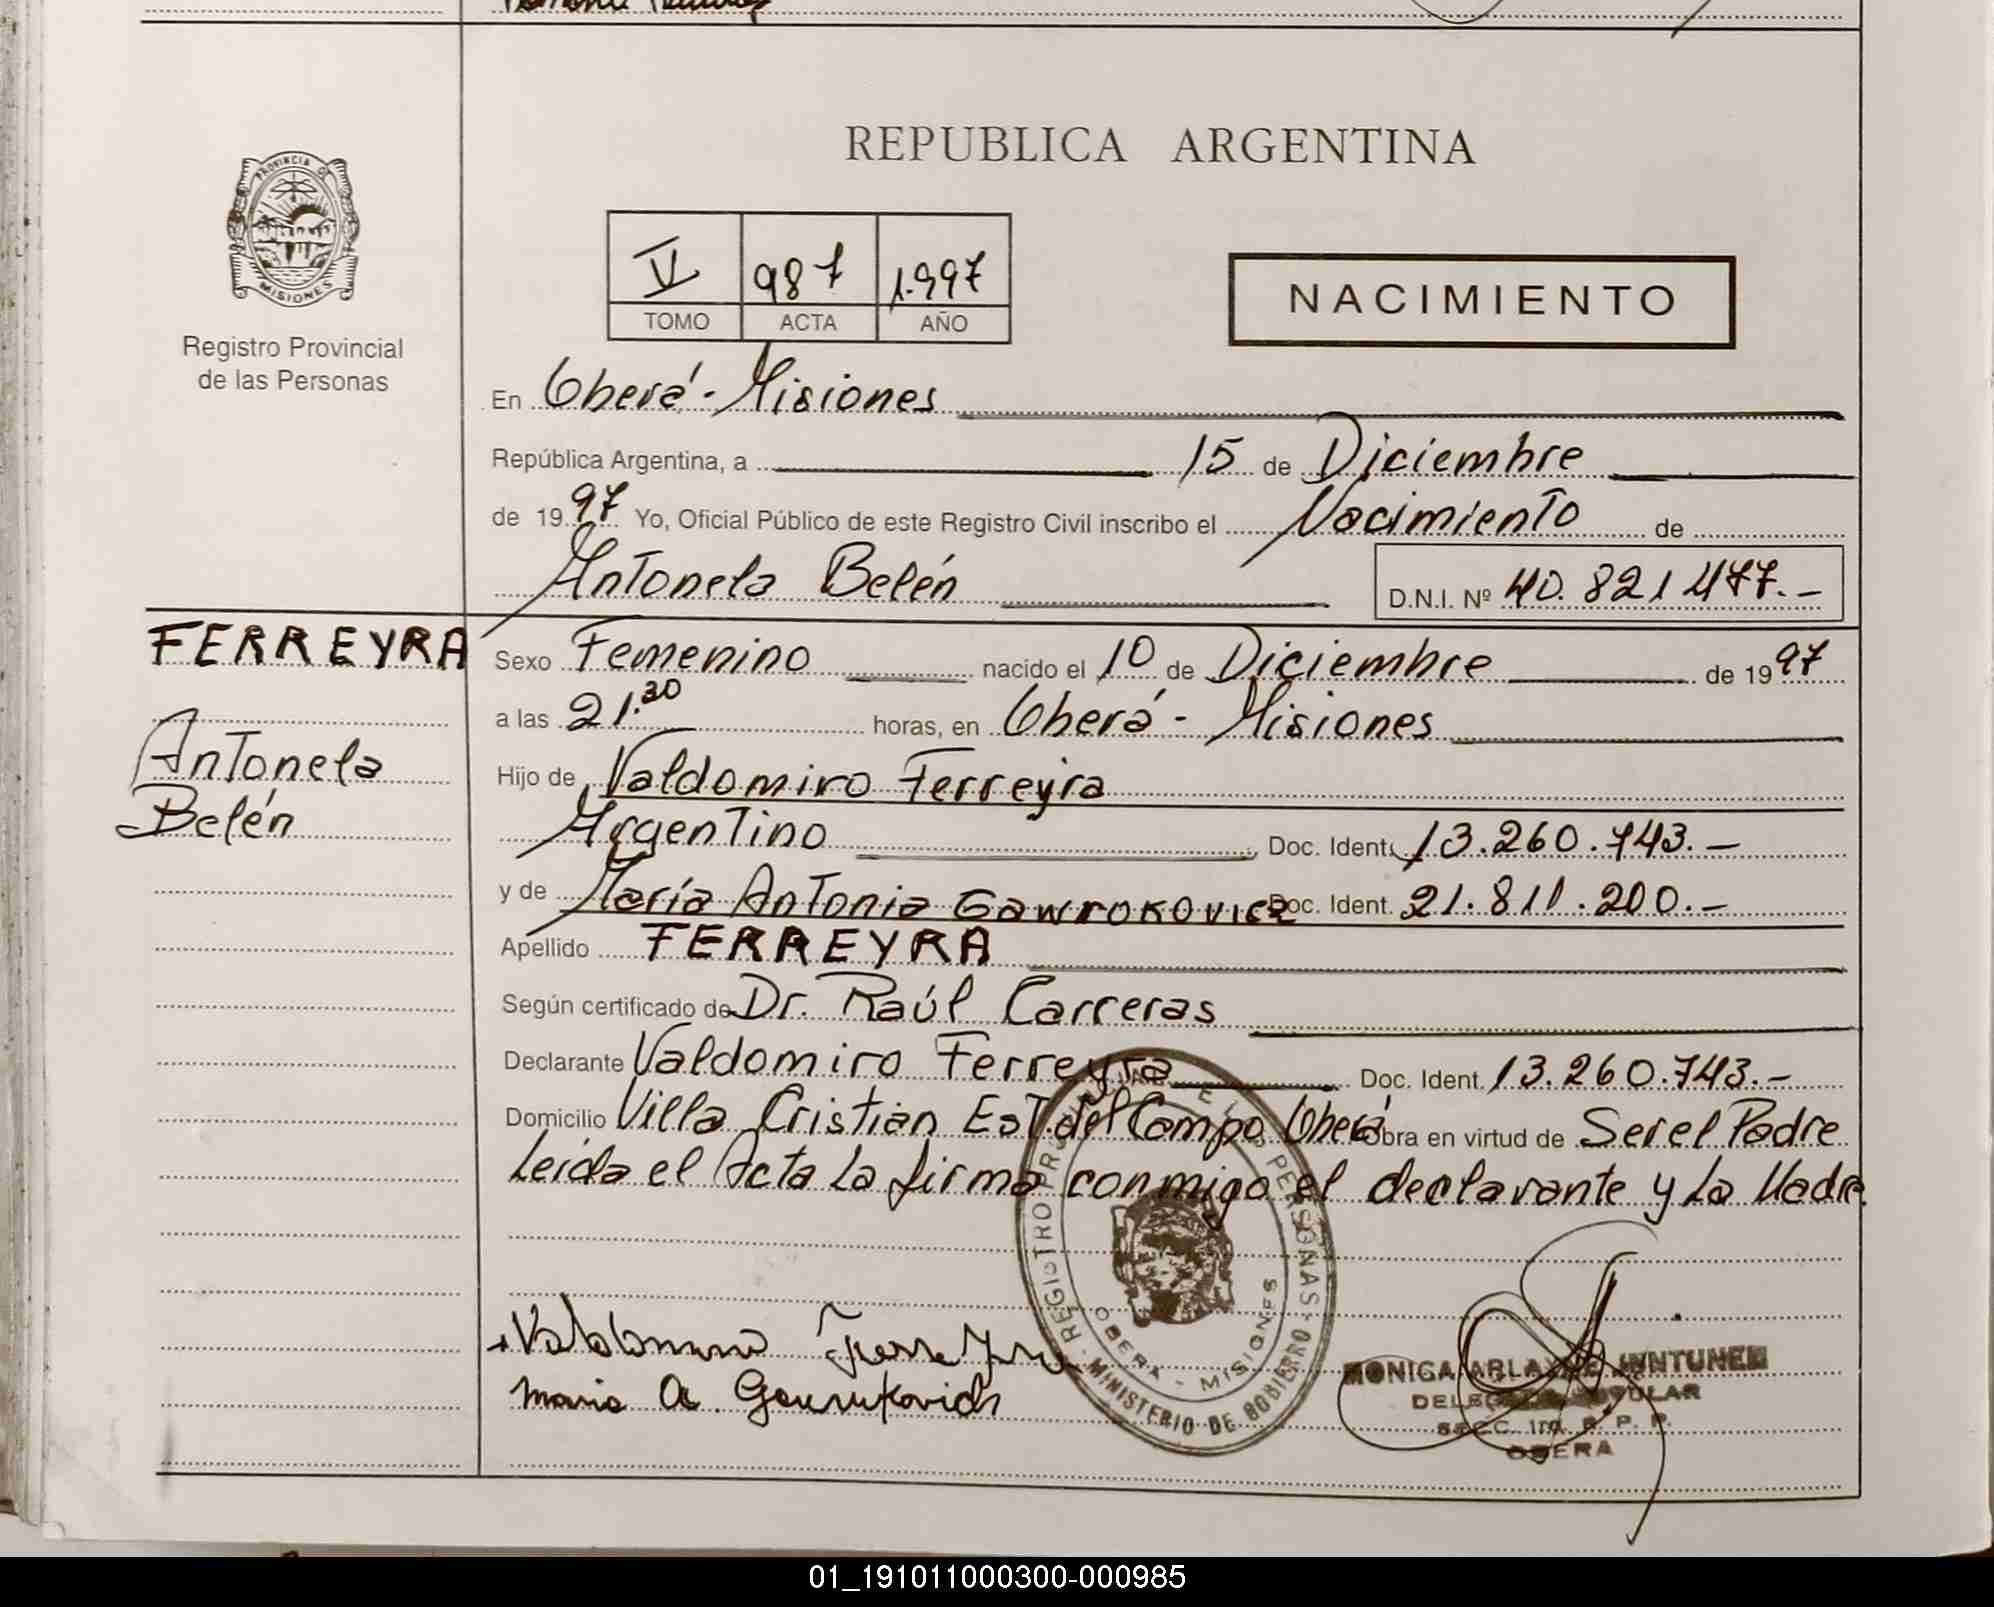 PROVINCIA DE
MISIONES
Registro Provincial
de las Personas
REPUBLICA ARGENTINA
V 987 1.997
TOMO ACTA AÑO
NACIMIENTO
En Oberá - Misiones
República Argentina, a 15 de Diciembre
de 1997 Yo, Oficial Público de este Registro Civil inscribo el Nacimiento de
Antonela Belén D.N.I. Nº 40.821477.-
FERREYRA
Antonela
Belén
Sexo Femenino nacido el 10 de Diciembre de 1997
a las 21.30 horas, en Oberá - Misiones
Hijo de Valdomiro Ferreyra
Argentino Doc. Ident. 13.260.743.-
y de María Antonia Gawrokovicz Doc. Ident. 21.811.200.-
Apellido FERREYRA
Según certificado de Dr. Raúl Carreras
Declarante Valdomiro Ferreyra Doc. Ident. 13.260.743.-
Domicilio Villa Cristian Est. del Campo Oberá Obra en virtud de Ser el Padre
Leida el Acta la firma conmigo el declarante y la Madre.
REGISTRO PROVINCIAL DE LAS PERSONAS
OBERA - MISIONES
MINISTERIO DE GOBIERNO
Ferreyra
Maria A.
MONICA
SECC. 1ra. R. P. P.
OBERA
01_191011000300-000985